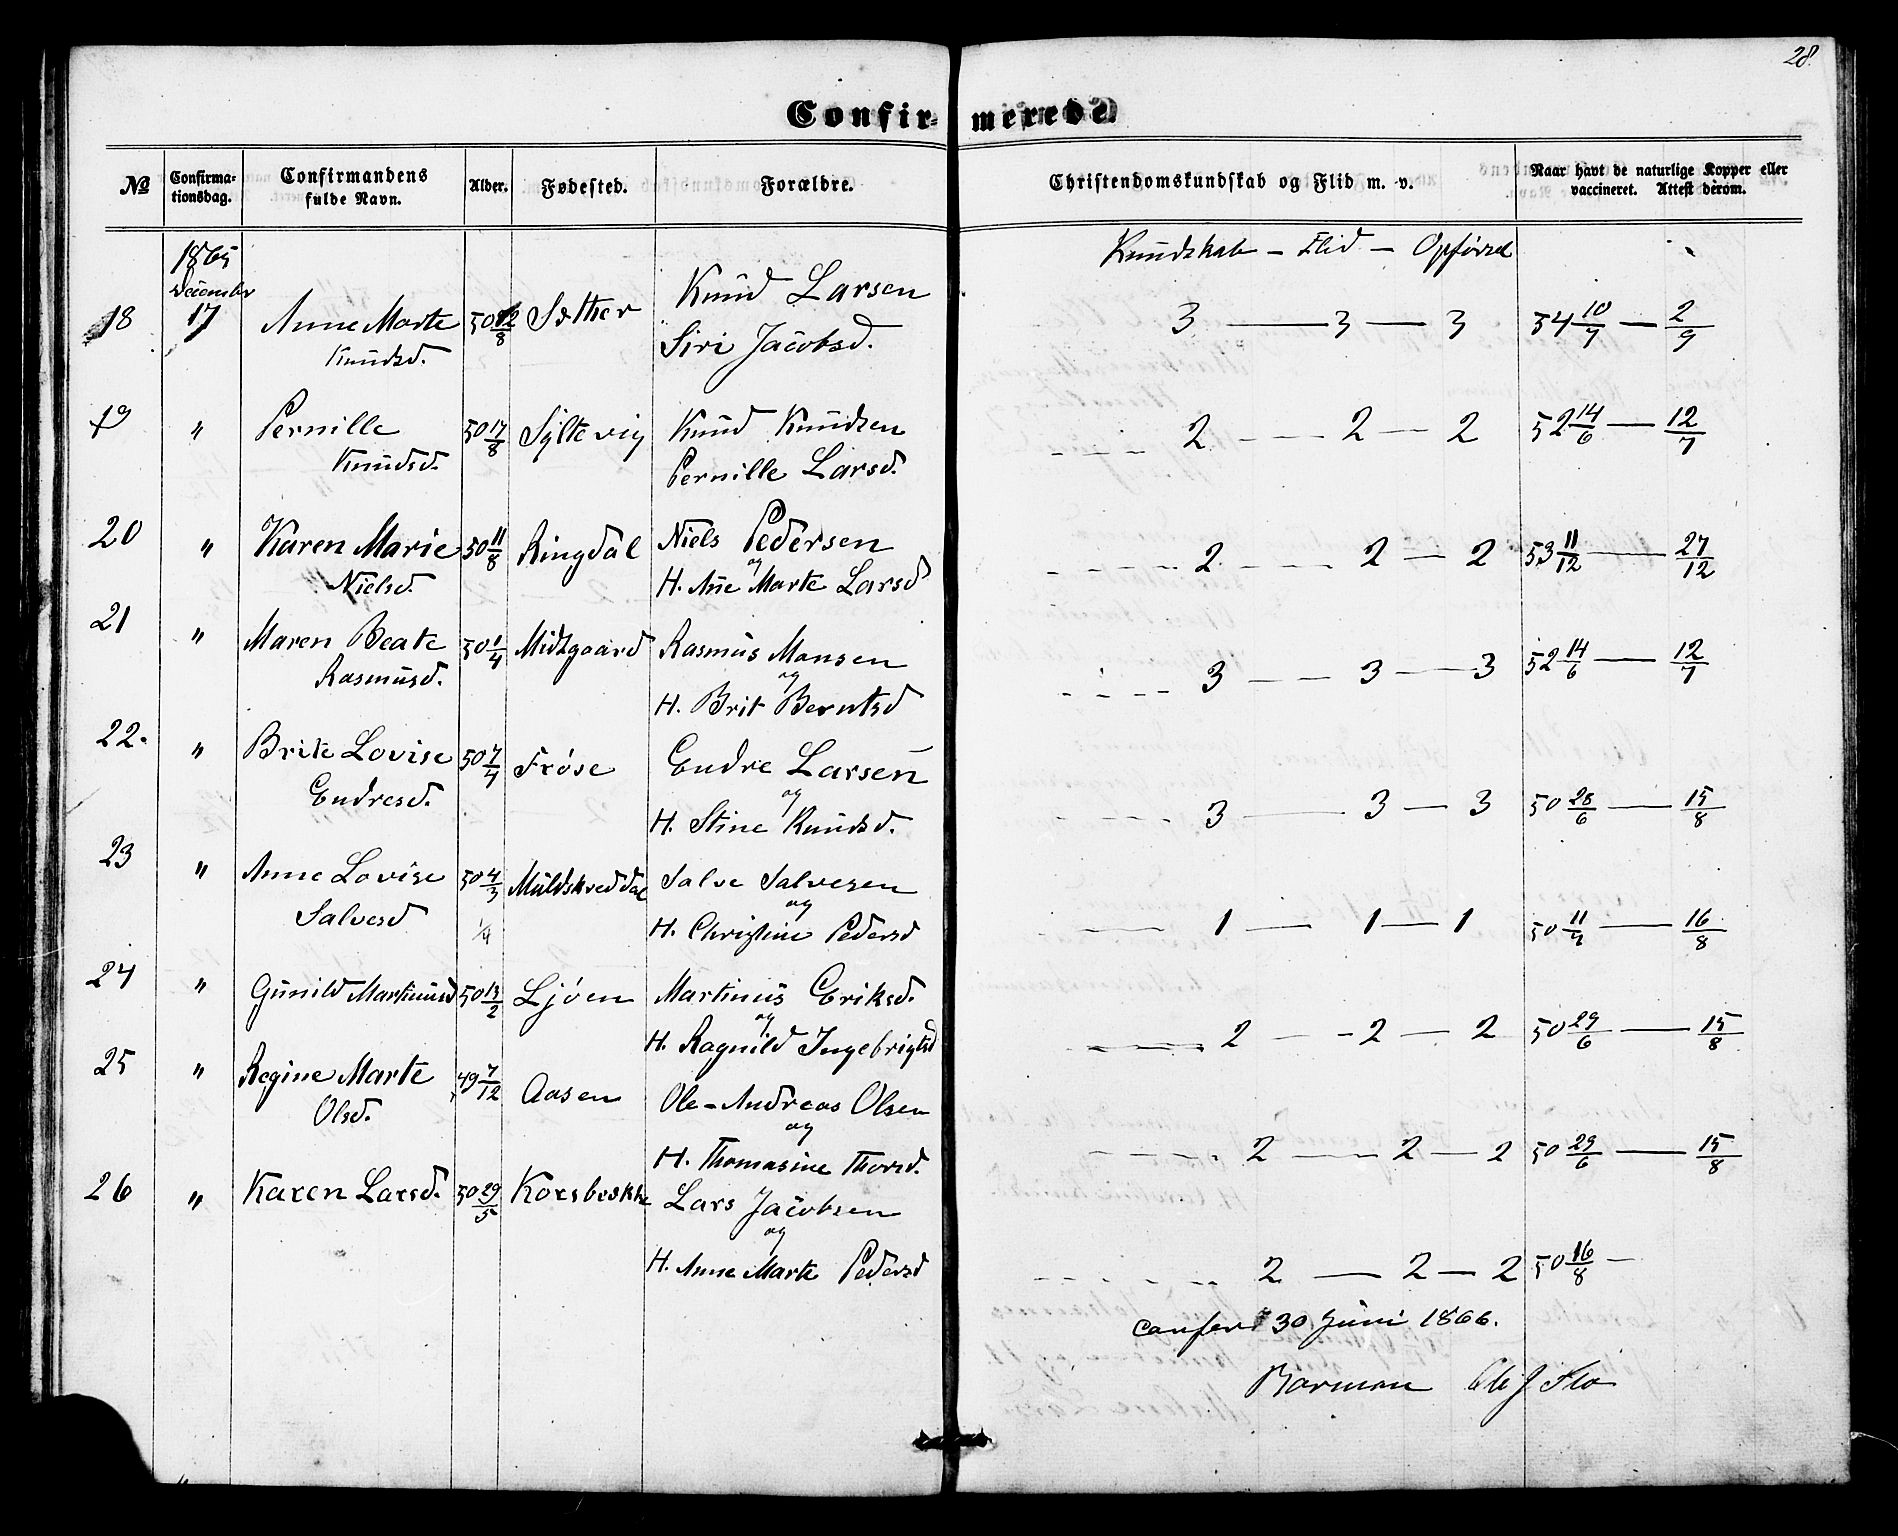 28.
Confirmerede.
No Confirmationsdag. Confirmandens fulde Navn. Alder. Fødested. Forældre. Christendomskundskab og Flid m. v. Naar havt de naturlige Kopper eller vaccineret. Attest derom.
1865 Kundskab – Flid – Opførsel
December
18 17 Anne Marte 50 12/8 Sæther Knud Larsen 3 — 3 — 3 54 10/7 — 2/9
Knudsd. Siri Jacobsd.
19 " Pernille 50 17/8 Syltevig Knud Knudsen 2 – – – 2 — 2 52 14/6 — 12/7
Knudsd. Pernille Larsd.
20 " Karen Marie 50 11/8 Ringdal Niels Pedersen 2 – – – 2 — 2 53 11/12 — 27/12
og
Nielsd. H. Ane Marte Larsd
21 " Maren Beate 50 1/4 Midtgaard Rasmus Monsen 3 — – – 3 — 3 52 14/6 — 12/7
og
Rasmusd. H. Brit Berntsd
22. " Brite Lovise 50 7/7 Frøse Endre Larsen 3 — 3 — 3 50 28/6 — 15/8
og
Endresd. H. Stine Knudsd.
23 " Anne Lovise 50 4/3 Muldskreddal Salve Salvesen 1 — 1 — 1 50 11/7 — 16/8
og
Salvesd 1/4 H. Christine Pedersd
24 " Gunild Martinusd 50 13/2 Ljøen Martinus Eriksd. 2 — – 2 — 2 50 29/6 — 15/8
og
H. Ragnild Ingebrigtsd
25 " Regine Marte 49 7/12 Aasen Ole-Andreas Olsen 2 — – 2 — 2 50 29/6 — 15/8
og
Olsd. H. Thomasine Thorsd.
26 " Karen Larsd. 50 29/5 Korsbrekke Lars Jacobsen 2 — 2 — 2 50 16/8 —
og
H. Anne Marte Pedersd
30 Juni 1866.
Barman Ole J Flo